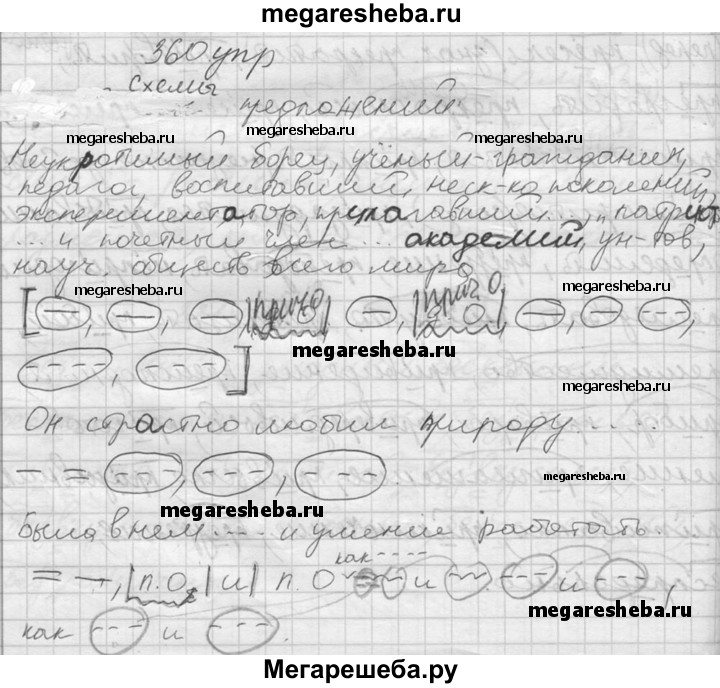 megaresheba.ru
360 упр
Схемы
предложений
megaresheba.ru megaresheba.ru megaresheba.ru
Неукротимый борец, учёный-гражданин,
педагог, воспитавший неск-ко поколений,
экспериментатор, пролагавший ..., патриот
... и почетный член ... академий, ун-тов,
науч. обществ всего мира
megaresheba.ru megaresheba.ru
[—, —, —, |прич. О|, —, |прич. О|, —, — ---,
megaresheba.ru
---, ---]
megaresheba.ru
Он страстно любил природу ... .
— = ---, ---, ---
megaresheba.ru
megaresheba.ru
Была в нем ... и умение работать.
как ----
= —, |п. О.| и | п. О и --- и ---,
megaresheba.ru
как --- и ---.
megaresheba.ru
Мегарешеба.ру